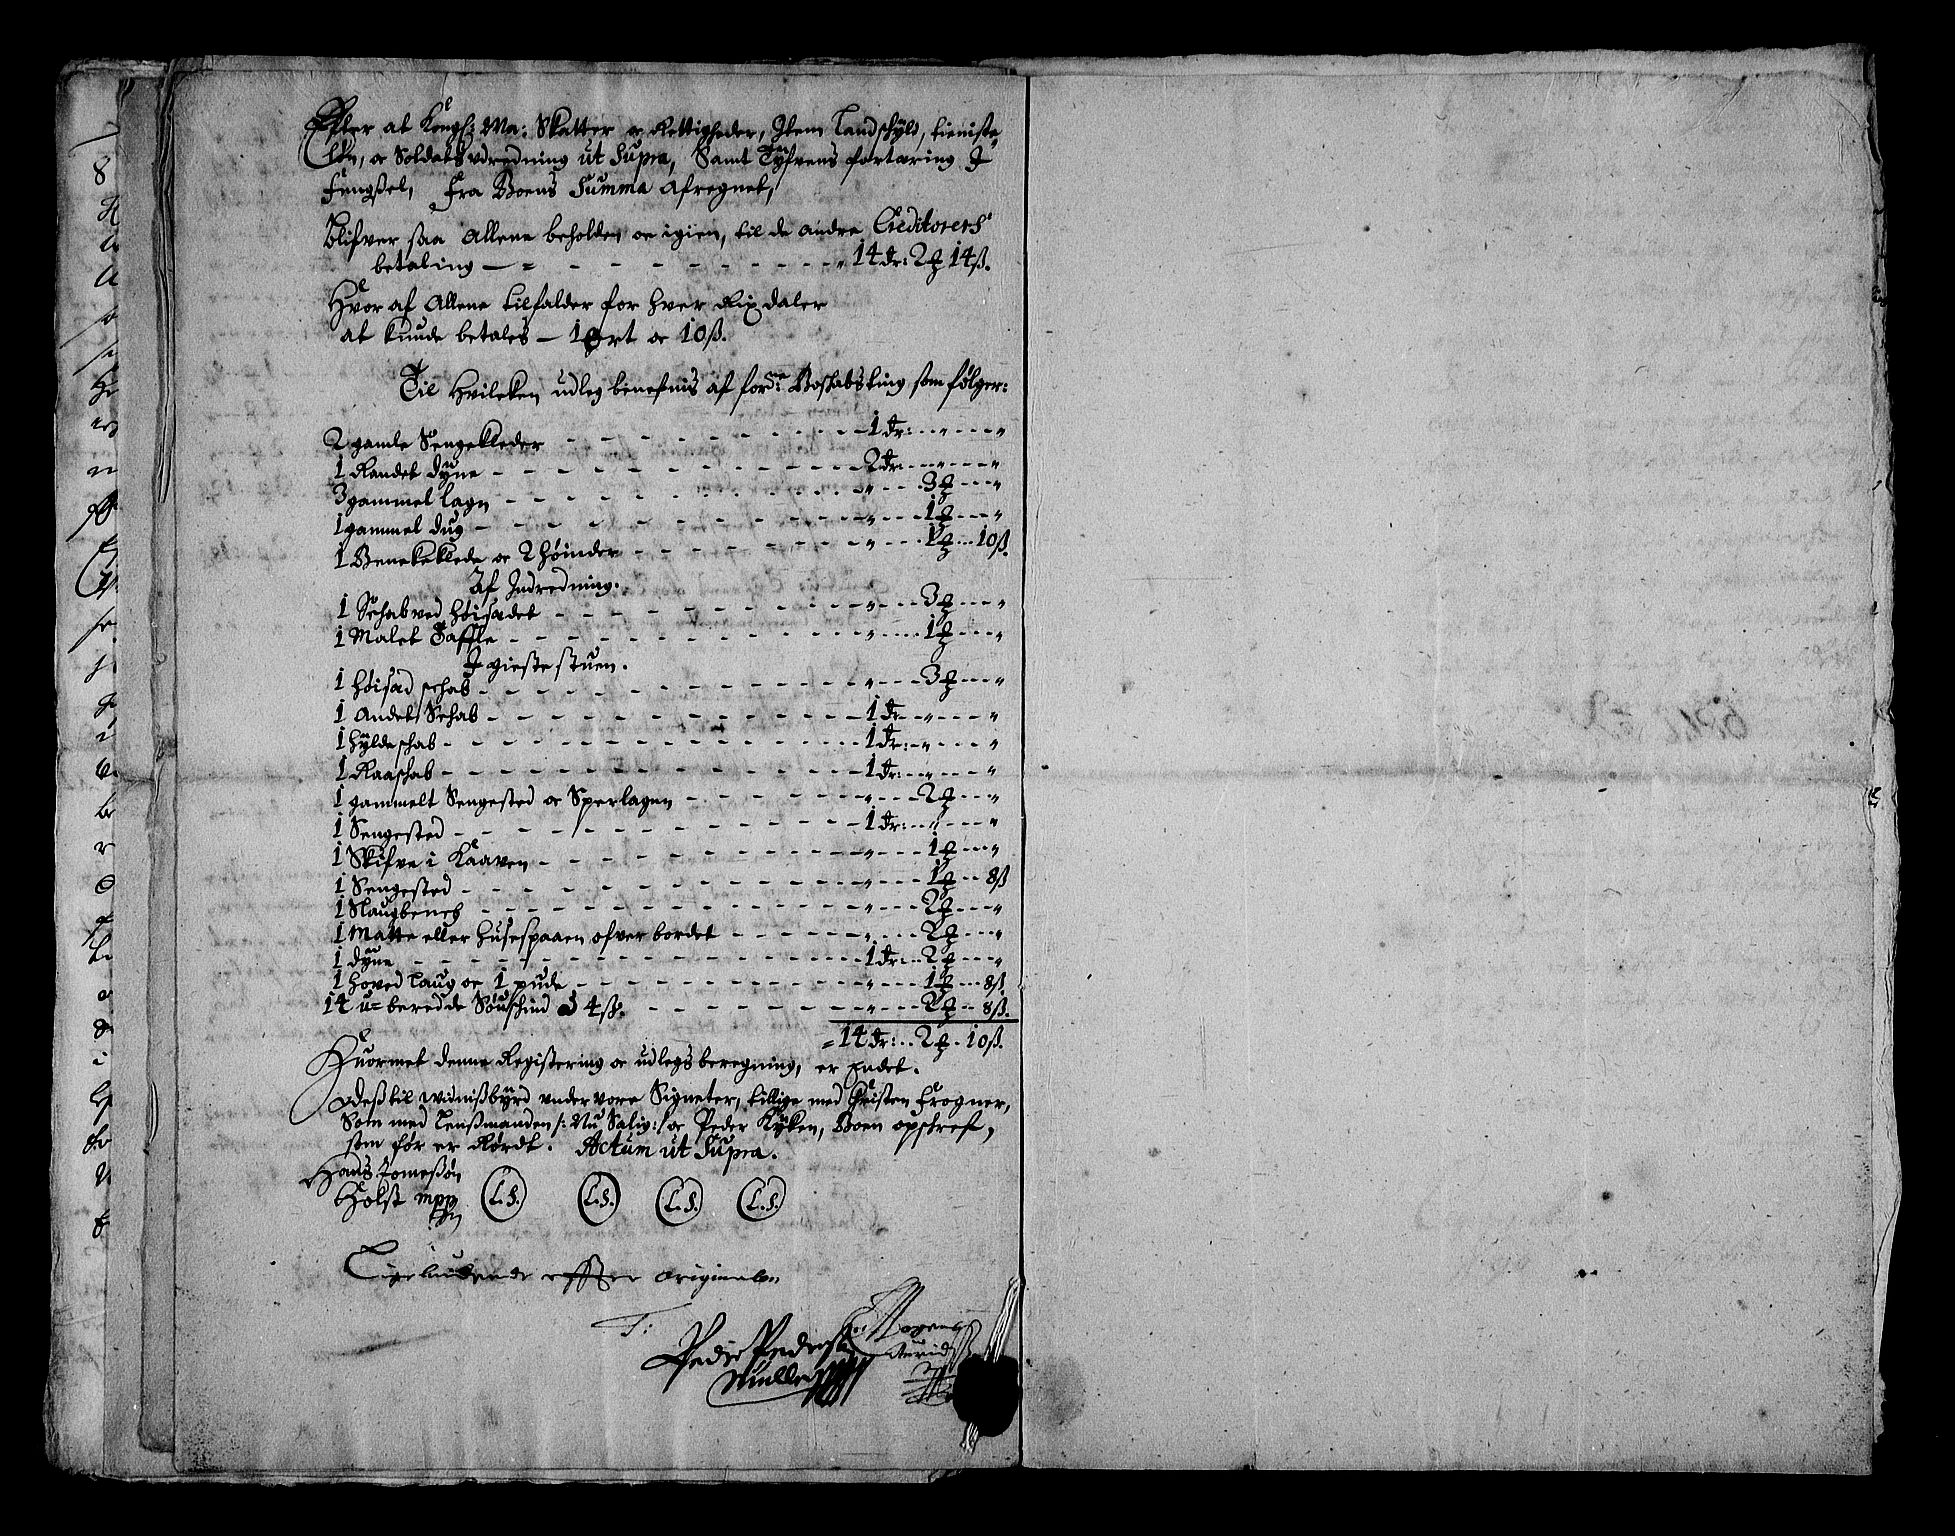 Efter at Kongl: Ma: Skatter oc Rettigheder, Item Landschyld, tieniste
Løn, oc Soldatsudredning ut Supra, Samt Tyfvens fortæring I
Fengßel, Fra Boens Summa Afregnet,
Blifver saa Allene beholden oc igien, til de andre Creditorers
betaling — = - - - - - - - - " 14 dr: 2 ȹ 14 ß.
Hvor af Allene tilfalder for hver Rixdaler
at kunde betales — 1 Ort oc 10 ß.
Til Hvilcken udleg benefnis af forde: Boschabs ting som følger:
2 gamle Sengekleder - - - - 1 dr: - " - "
1 Randet dyne - - - - 2 dr: - " - "
3 gammel lagn - - - - " - 3 ȹ - "
1 gammel dug - - - - " - 1 ȹ - "
1 Benckeklede oc 2 høinder - - - - " - 1 ȹ - 10 ß.
Af Indredning.
1 Schab ved høisædet - - - - " - 3 ȹ - "
1 Malet Taffle - - - - " - 1 ȹ - "
I gieste stuen.
1 høisæd schab - - - - " - 3 ȹ - "
1 Andet Schab - - - - 1 dr - " - "
1 hylde schab - - - - 1 dr: - " - "
1 Raaschab - - - - 1 dr: - " - "
1 gammelt Sengested oc Sperlagen - - - - " - 2 ȹ - "
1 Sengested - - - - 1 dr: - " - "
1 Skifve i Kaaven - - - - " - 1 ȹ - "
1 Sengested - - - - " - 1 ȹ - 8 ß
1 Slaugbench - - - - " - 2 ȹ - "
1 Matte eller husespaaen ofver bordet - - - - " - 2 ȹ - "
1 dyne - - - - 1 dr: - 2 ȹ - "
1 hoved Laug oc 1 pude - - - - " - 1 ȹ - 8 ß.
14 u= beredde Souschind à 4 ß. - - - - " - 2 ȹ - 8 ß.
= 14 dr: - 2 ȹ - 10 ß.
Huormet denne Registering oc udlegs beregning, er Endet.
Deß til widnißbyrd under vore Signeter, tillige med Christen Frogner,
Som med Lensmanden /: Nu Salig: / oc Peder Kyken, Boen opskref,
som før er Rørdt. Actum ut Supra.
Hans Jomeßøn
Holst mpp (L.S.) (L.S.) (L.S.) (L.S.)
Ligeludende effter originalen
T:
Peder Pedersen
Mogens
Müller